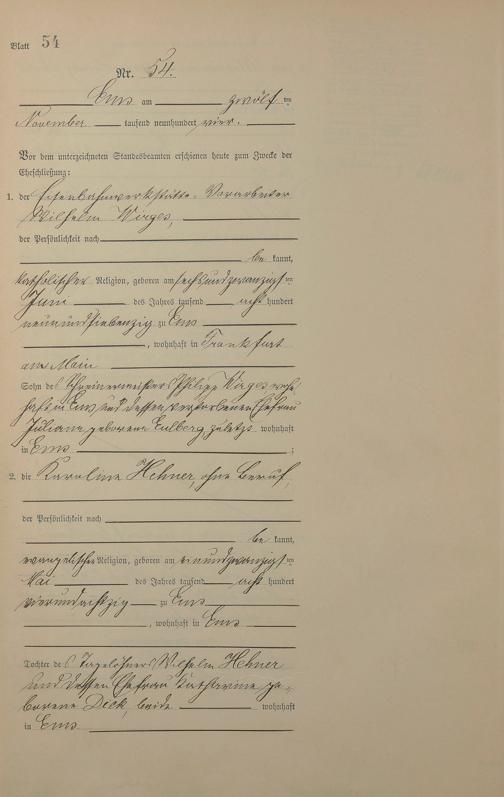 Blatt 54
Nr. 54.
Ems am zwölften
November tausend neunhundert vier.
Vor dem unterzeichneten Standesbeamten erschienen heute zum Zwecke der
Eheschließung:
1. der Eisenbahnwerkstätte-Vorarbeiter
Wilhelm Wirges,
der Persönlichkeit nach
be kannt,
katholischer Religion, geboren am sechsundzwanzigsten
Juni des Jahres tausend acht hundert
neunundsiebenzig zu Ems
, wohnhaft in Frankfurt
am Main
Sohn des Schreinermeisters Philipp Wirges wohn
haft in Ems und dessen verstorbenen Ehefrau
Juliane geborene Eulberg zuletzt wohnhaft
in Ems ;
2. die Karoline Hehner, ohne Beruf,
der Persönlichkeit nach
be kannt,
evangelischer Religion, geboren am einundzwanzigsten
Mai des Jahres tausend acht hundert
vierundachtzig zu Ems
, wohnhaft in Ems
Tochter des Tagelöhners Wilhelm Hehner
und dessen Ehefrau Katharine ge-
borene Dick, beide wohnhaft
in Ems